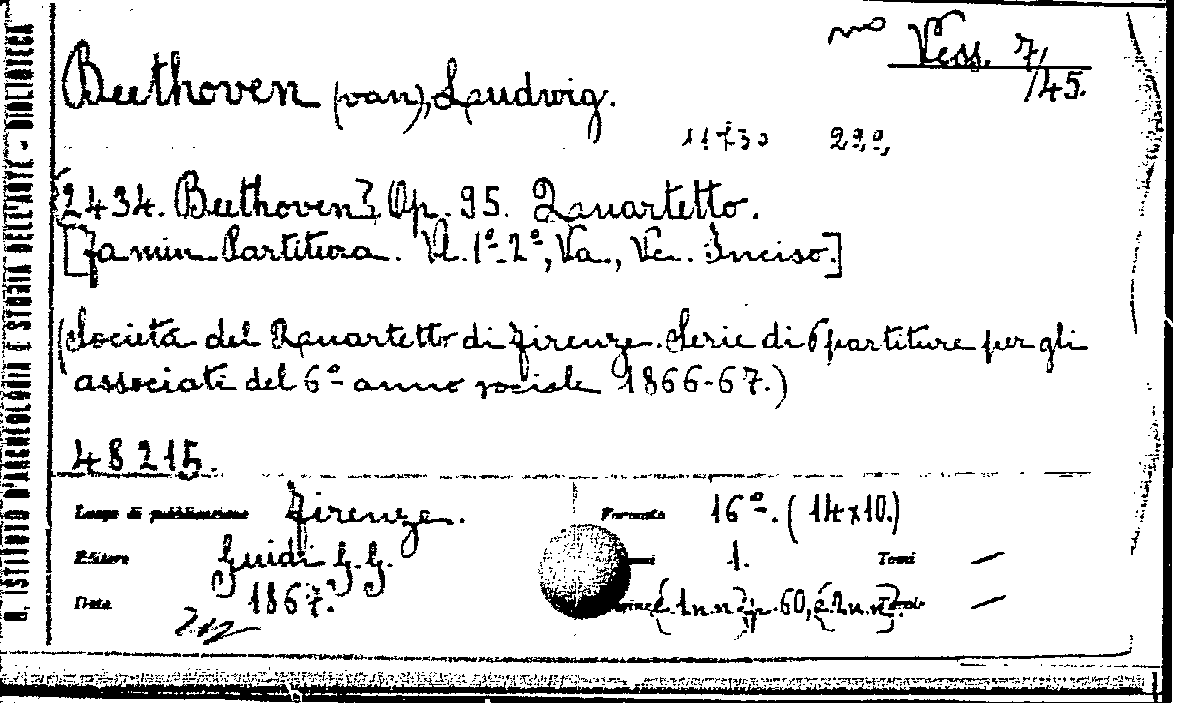 R. ISTITUTO D'ARCHEOLOGIA E STORIA DELL'ARTE - BIBLIOTECA
mo Vess. 7/145.
Beethoven (van), Ludwig.
11730 299
[2434. Beethoven]. Op. 95. Quartetto.
[Fa min. Partitura. Vl. 1º-2º, Va., Vc. Inciso.]
(Società del Quartetto di Firenze. Serie di 6 partiture per gli
associati del 6º anno sociale 1866-67.)
48215.
Luogo di pubblicazione Firenze.
Formato 16º. (14x10.)
Editore Guidi G. G.
1.
Tomi —
Data 1867.
[1 n.n.] p. 60, [2 n.n.]. Tavole —